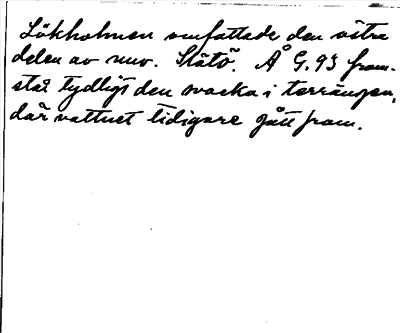 Lökholmen omfattade den västra
delen av nuv. Slätö. Å G.93 fram-
står tydligt den svacka i terrängen,
där vattnet tidigare gått fram.